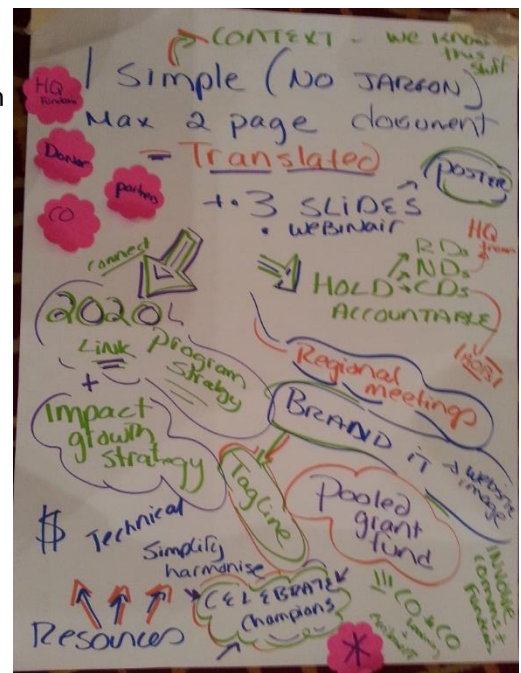 CONTEXT - we know this stuff
1 Simple (NO JARGON)
Max 2 page document
= Translated
HQ
Donor
partners
CO
POSTER
+ . 3 SLIDES
. WEBINAIR
HQ
RDs
NDs
HOLD CDs
ACCOUNTABLE
connect
2020
LINK
program
Strategy
+
Impact
growth
strategy
Regional
meetings
BRAND it → website
image
Tagline
Pooled
grant
fund
$ Technical
Simplify
harmonise
CELEBRATE
Champions
Resources
CO → CO
INVOLVE
*